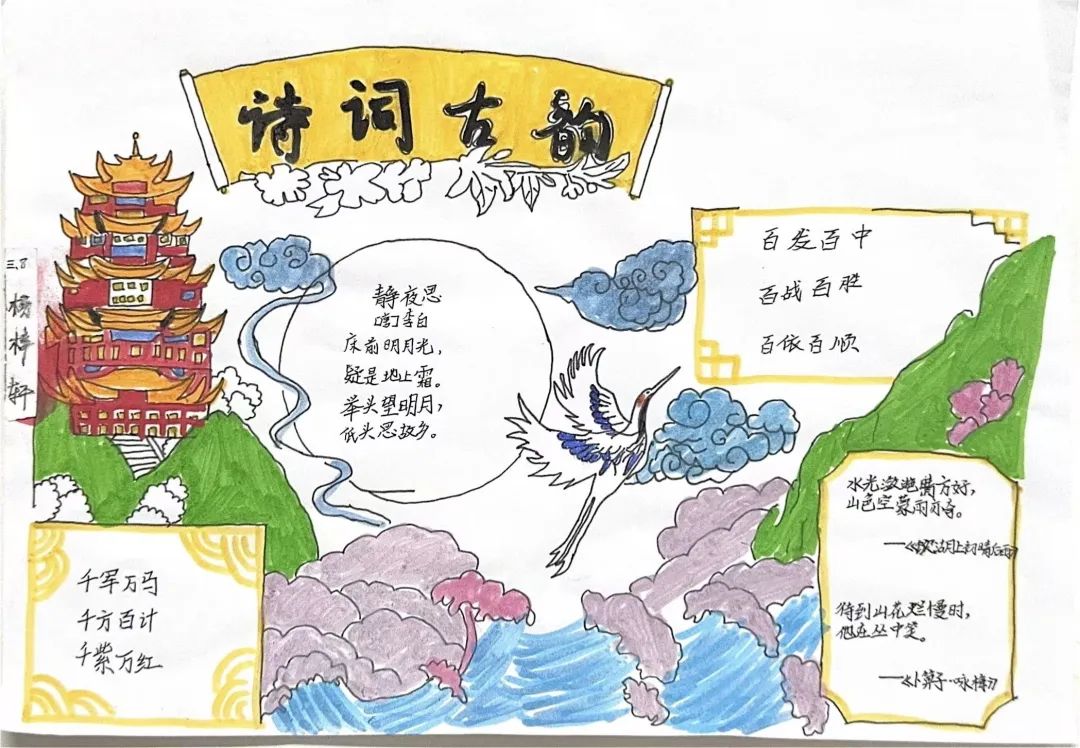 诗词古韵
杨梓轩
静夜思
[唐]李白
床前明月光，
疑是地上霜。
举头望明月，
低头思故乡。
百发百中
百战百胜
百依百顺
千军万马
千方百计
千紫万红
水光潋滟晴方好，
山色空蒙雨亦奇。
——《饮湖上初晴后雨》
待到山花烂慢时，
他在丛中笑。
——《卜算子·咏梅》